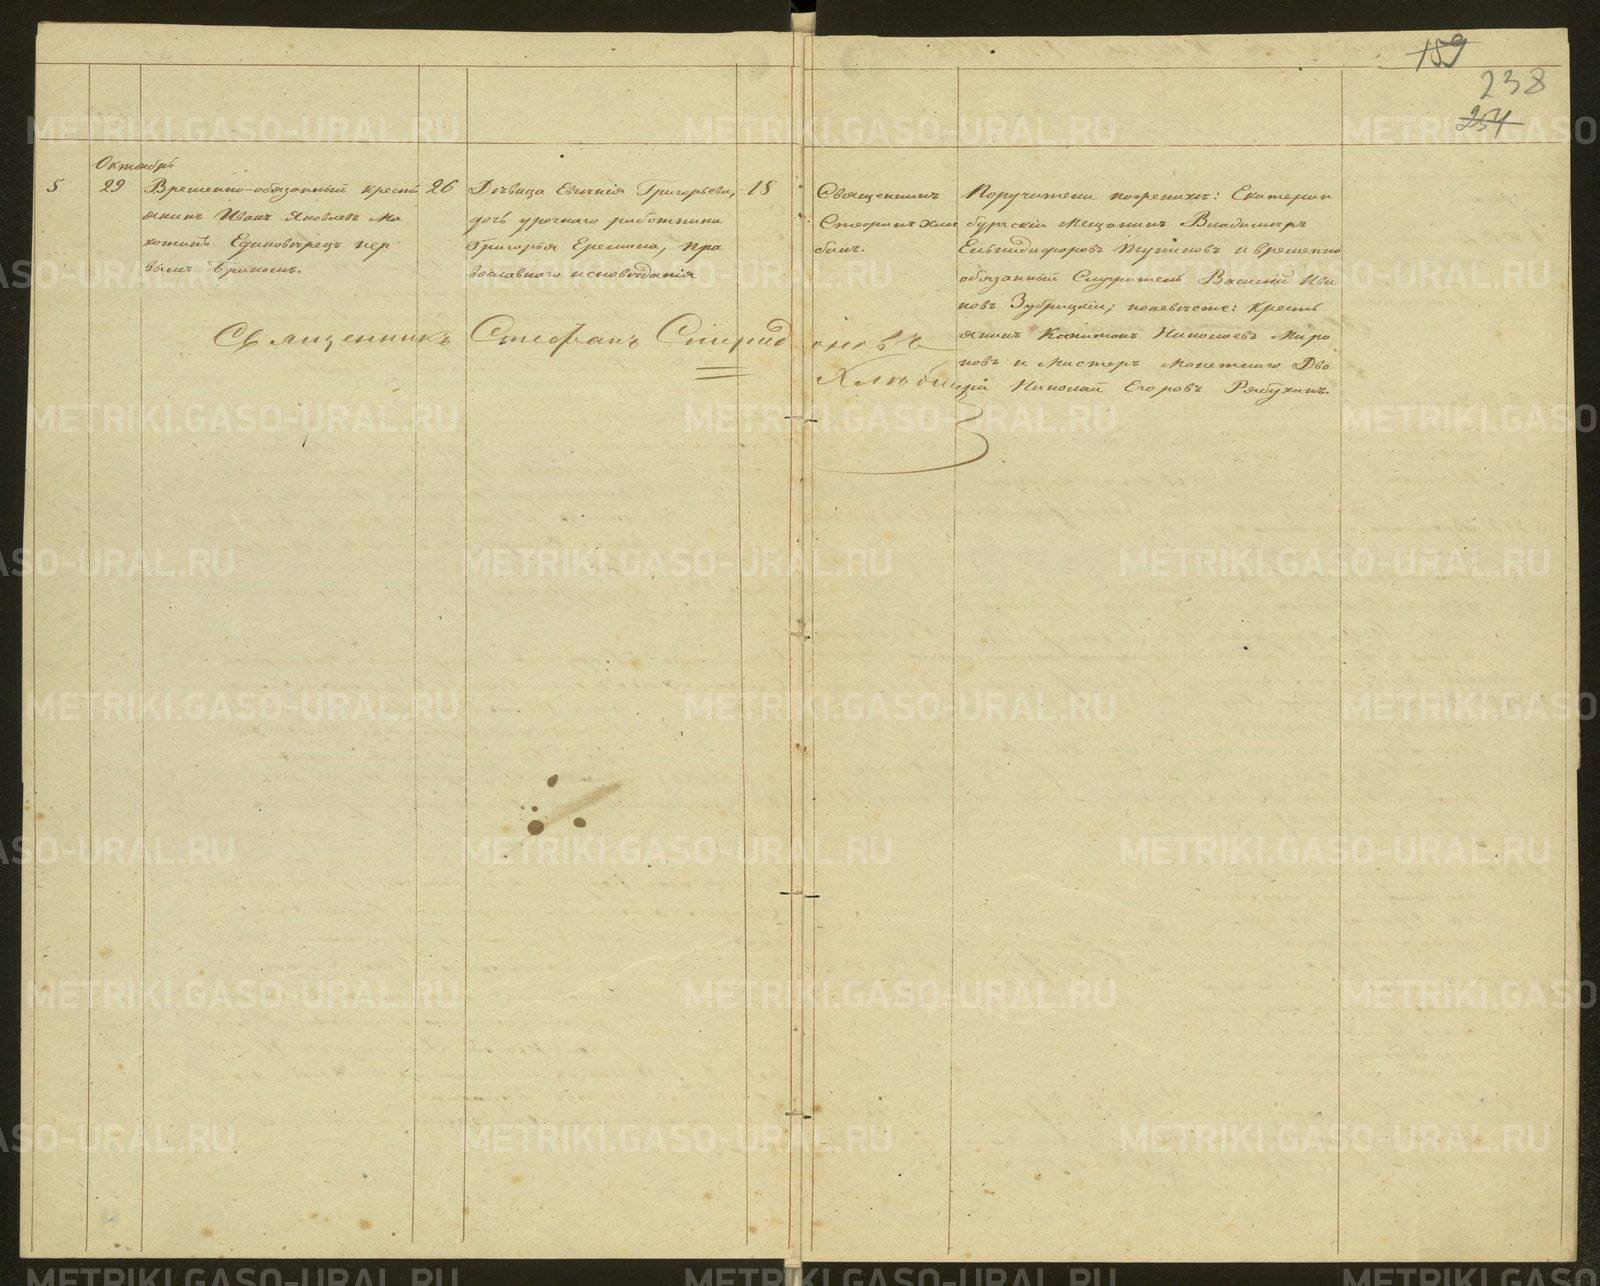 159
238
254
Октябрь
5
29
Временно-обязанный кресть
янинъ Иванъ Яковлевъ Ма
хотинъ Единовѣрецъ пер
вымъ бракомъ.
26
Дѣвица Евгенія Григорьева,
дочь урочнаго работника
Григорья Еремина, пра
вославнаго исповѣданія
18
Священникъ
Стефанъ Хлы
бовъ.
Поручители по женихѣ: Екатерин
бургскій Мещанинъ Владимиръ
Елпидифоровъ и временно
обязанный Служитель Василій Ива
новъ Зубрицкій; по невѣстѣ: Кресть
янинъ Капитонъ Николаевъ Миро
новъ и Мастеръ Монетнаго Дво
ра Николай Егоровъ Рябухинъ.
Священникъ Стефанъ Спирид
оновъ
METRIKI.GASO-URAL.RU